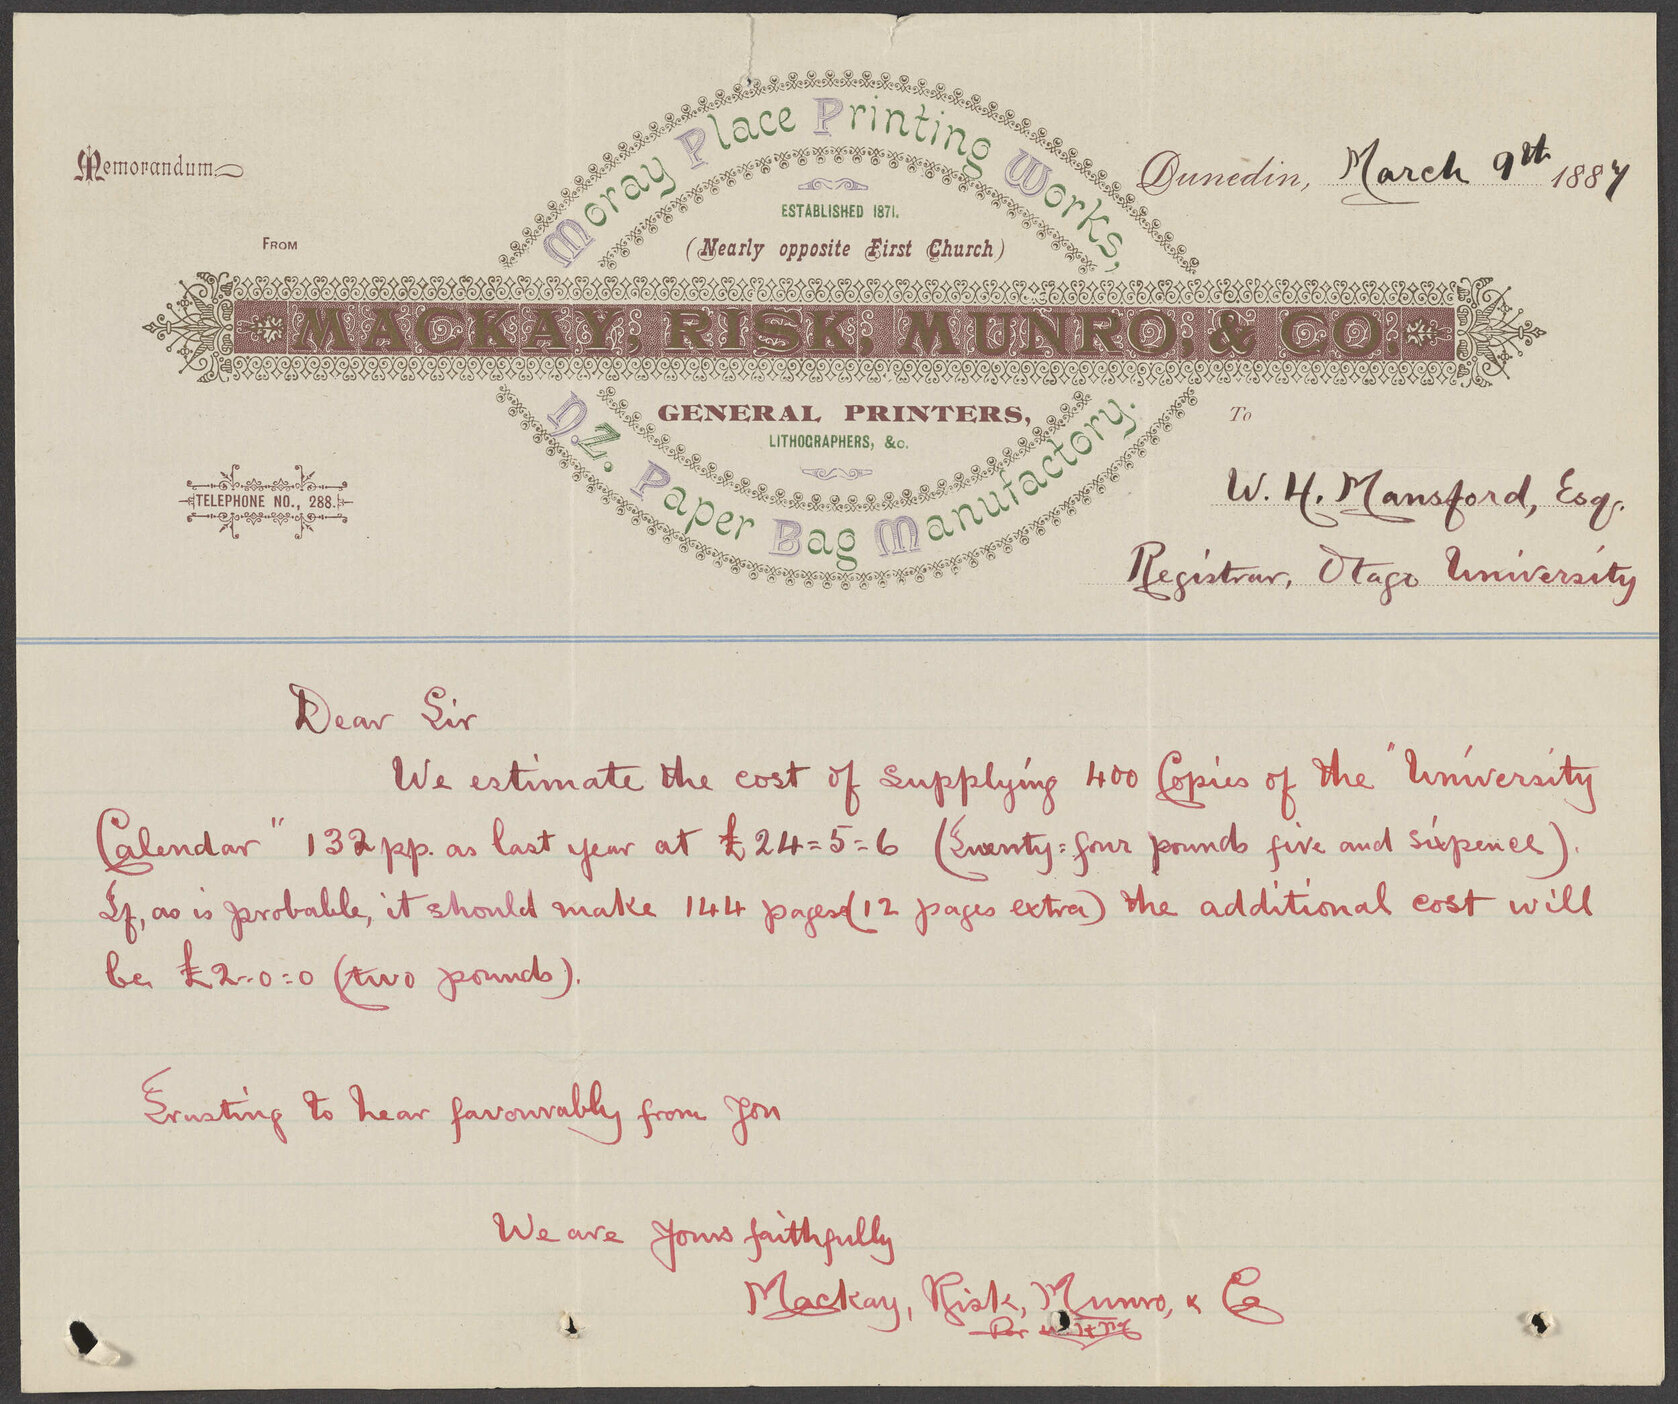 Memorandum
Moray Place Printing Works,
Dunedin, March 9th 1887
ESTABLISHED 1871.
FROM
(Nearly opposite First Church)
MACKAY, RISK, MUNRO, & CO.,
GENERAL PRINTERS,
LITHOGRAPHERS, &c.
N.Z. Paper Bag Manufactory.
To
TELEPHONE NO., 288.
W. H. Mansford, Esq.
Registrar, Otago University
Dear Sir
We estimate the cost of supplying 400 Copies of the "University
Calendar" 132 pp. as last year at £24=5=6 (Twenty=four pounds five and sixpence).
If, as is probable, it should make 144 pages (12 pages extra) the additional cost will
be £2-0=0 (two pounds).
Trusting to hear favourably from you
We are yours faithfully
Mackay, Risk, Munro, & Co
Per